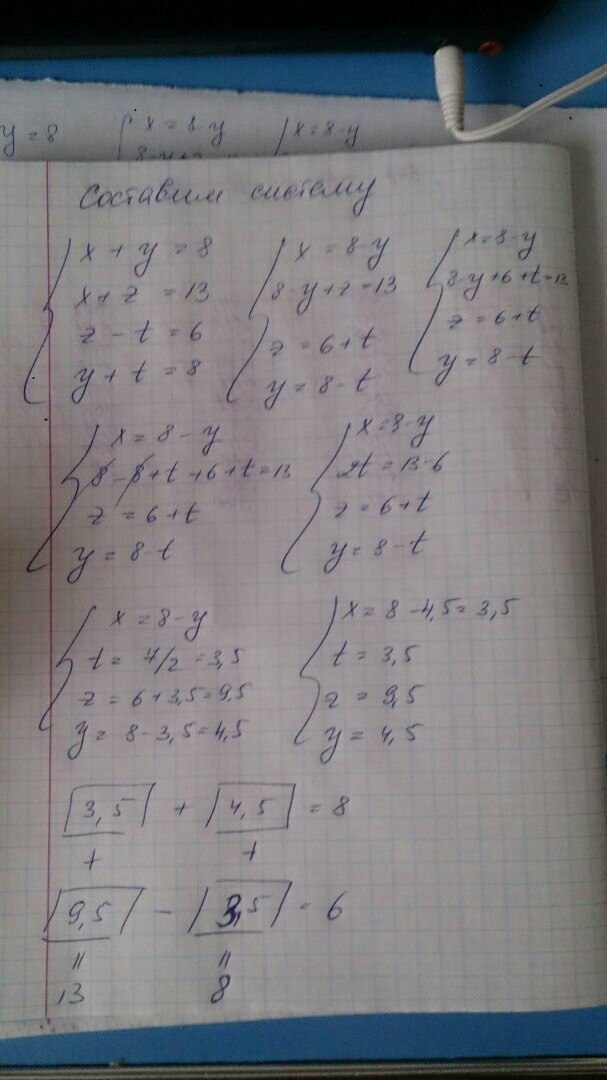 y = 8 x = 8-y x = 8-y
Составим систему
x + y = 8
x + z = 13
z - t = 6
y + t = 8
x = 8-y
8-y+z=13
z = 6+t
y = 8-t
x = 8-y
8-y+6+t=13
z = 6+t
y = 8-t
x = 8-y
8-8+t+6+t=13
z = 6+t
y = 8-t
x = 8-y
2t = 13-6
z = 6+t
y = 8-t
x = 8-y
t = 7/2 = 3,5
z = 6+3,5=9,5
y = 8-3,5=4,5
x = 8-4,5=3,5
t = 3,5
z = 9,5
y = 4,5
3,5 + 4,5 = 8
+ +
9,5 - 3,5 = 6
= =
13 8